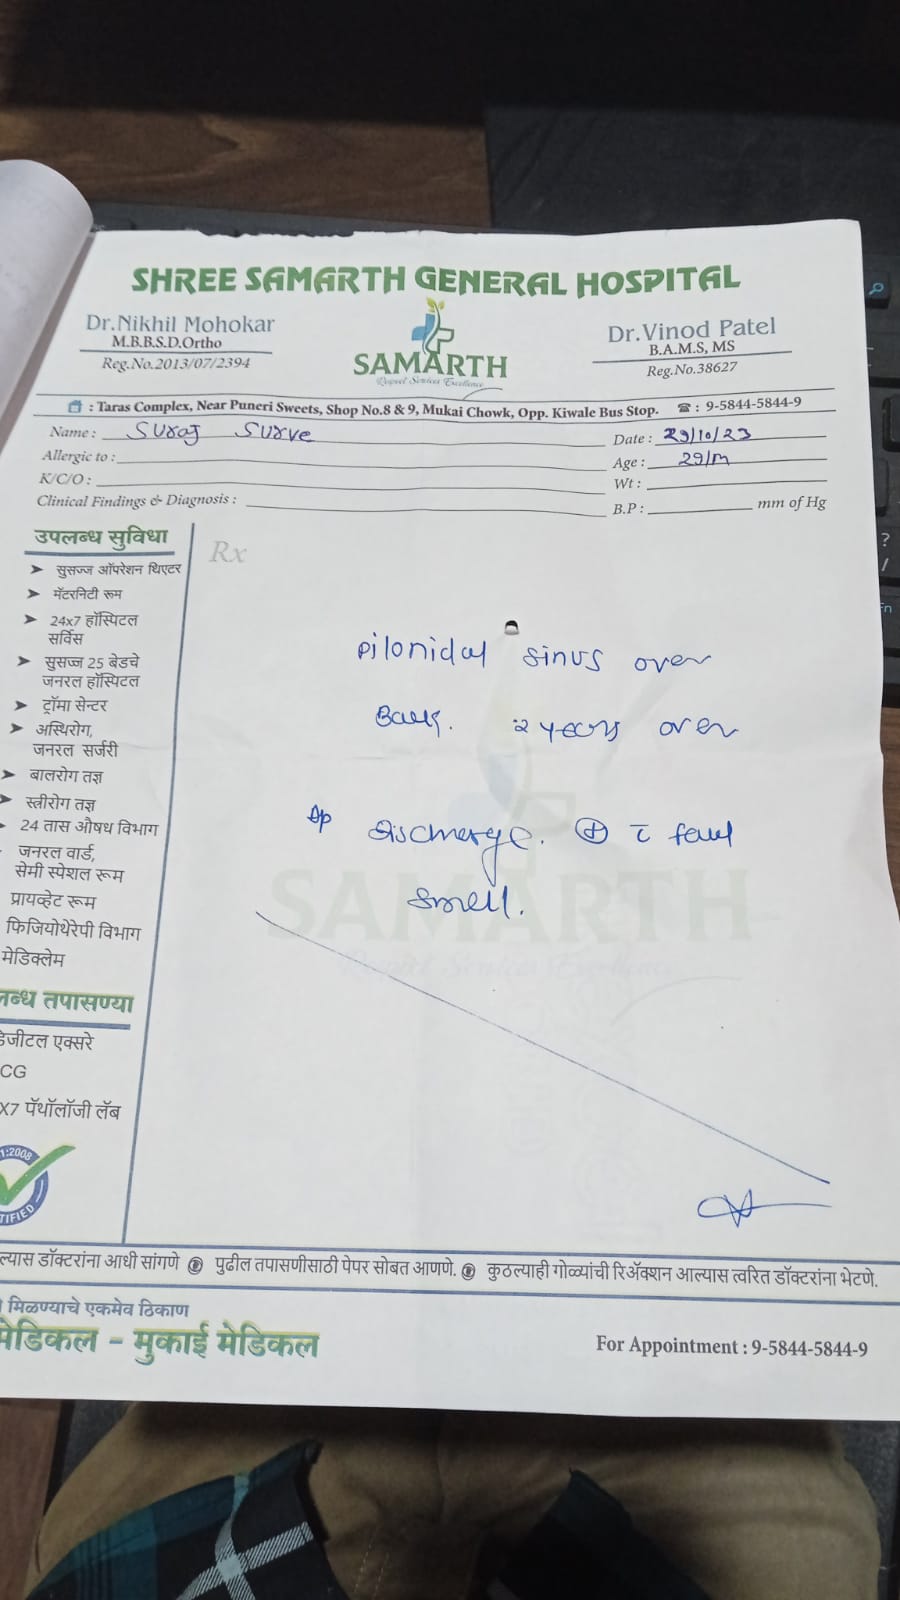 SHREE SAMARTH GENERAL HOSPITAL
Dr.Nikhil Mohokar
M.B.B.S.D.Ortho
Reg.No.2013/07/2394
SAMARTH
Respect Services Excellence
Dr.Vinod Patel
B.A.M.S, MS
Reg.No.38627
: Taras Complex, Near Puneri Sweets, Shop No.8 & 9, Mukai Chowk, Opp. Kiwale Bus Stop. ☎ : 9-5844-5844-9
Name : Suraj Surve Date : 29/10/23
Allergic to : Age : 29/m
K/C/O : Wt :
Clinical Findings & Diagnosis : B.P : mm of Hg
उपलब्ध सुविधा
➤ सुसज्ज ऑपरेशन थिएटर
➤ मॅटरनिटी रूम
➤ 24x7 हॉस्पिटल
सर्विस
➤ सुसज्ज 25 बेडचे
जनरल हॉस्पिटल
➤ ट्रॉमा सेन्टर
➤ अस्थिरोग,
जनरल सर्जरी
➤ बालरोग तज्ञ
➤ स्त्रीरोग तज्ञ
24 तास औषध विभाग
जनरल वार्ड,
सेमी स्पेशल रूम
प्रायव्हेट रूम
फिजियोथेरेपी विभाग
मेडिक्लेम
लब्ध तपासण्या
डेजीटल एक्सरे
CG
X7 पॅथॉलॉजी लॅब
1:2008
TIFIED
Rx
pilonidal sinus over
2 years over
discharge. ⊕ c̄ foul
smell.
SAMARTH
Respect Services Excellence
ल्यास डॉक्टरांना आधी सांगणे पुढील तपासणीसाठी पेपर सोबत आणणे. कुठल्याही गोळ्यांची रिॲक्शन आल्यास त्वरित डॉक्टरांना भेटणे.
मिळण्याचे एकमेव ठिकाण
मेडिकल - मुकाई मेडिकल
For Appointment : 9-5844-5844-9